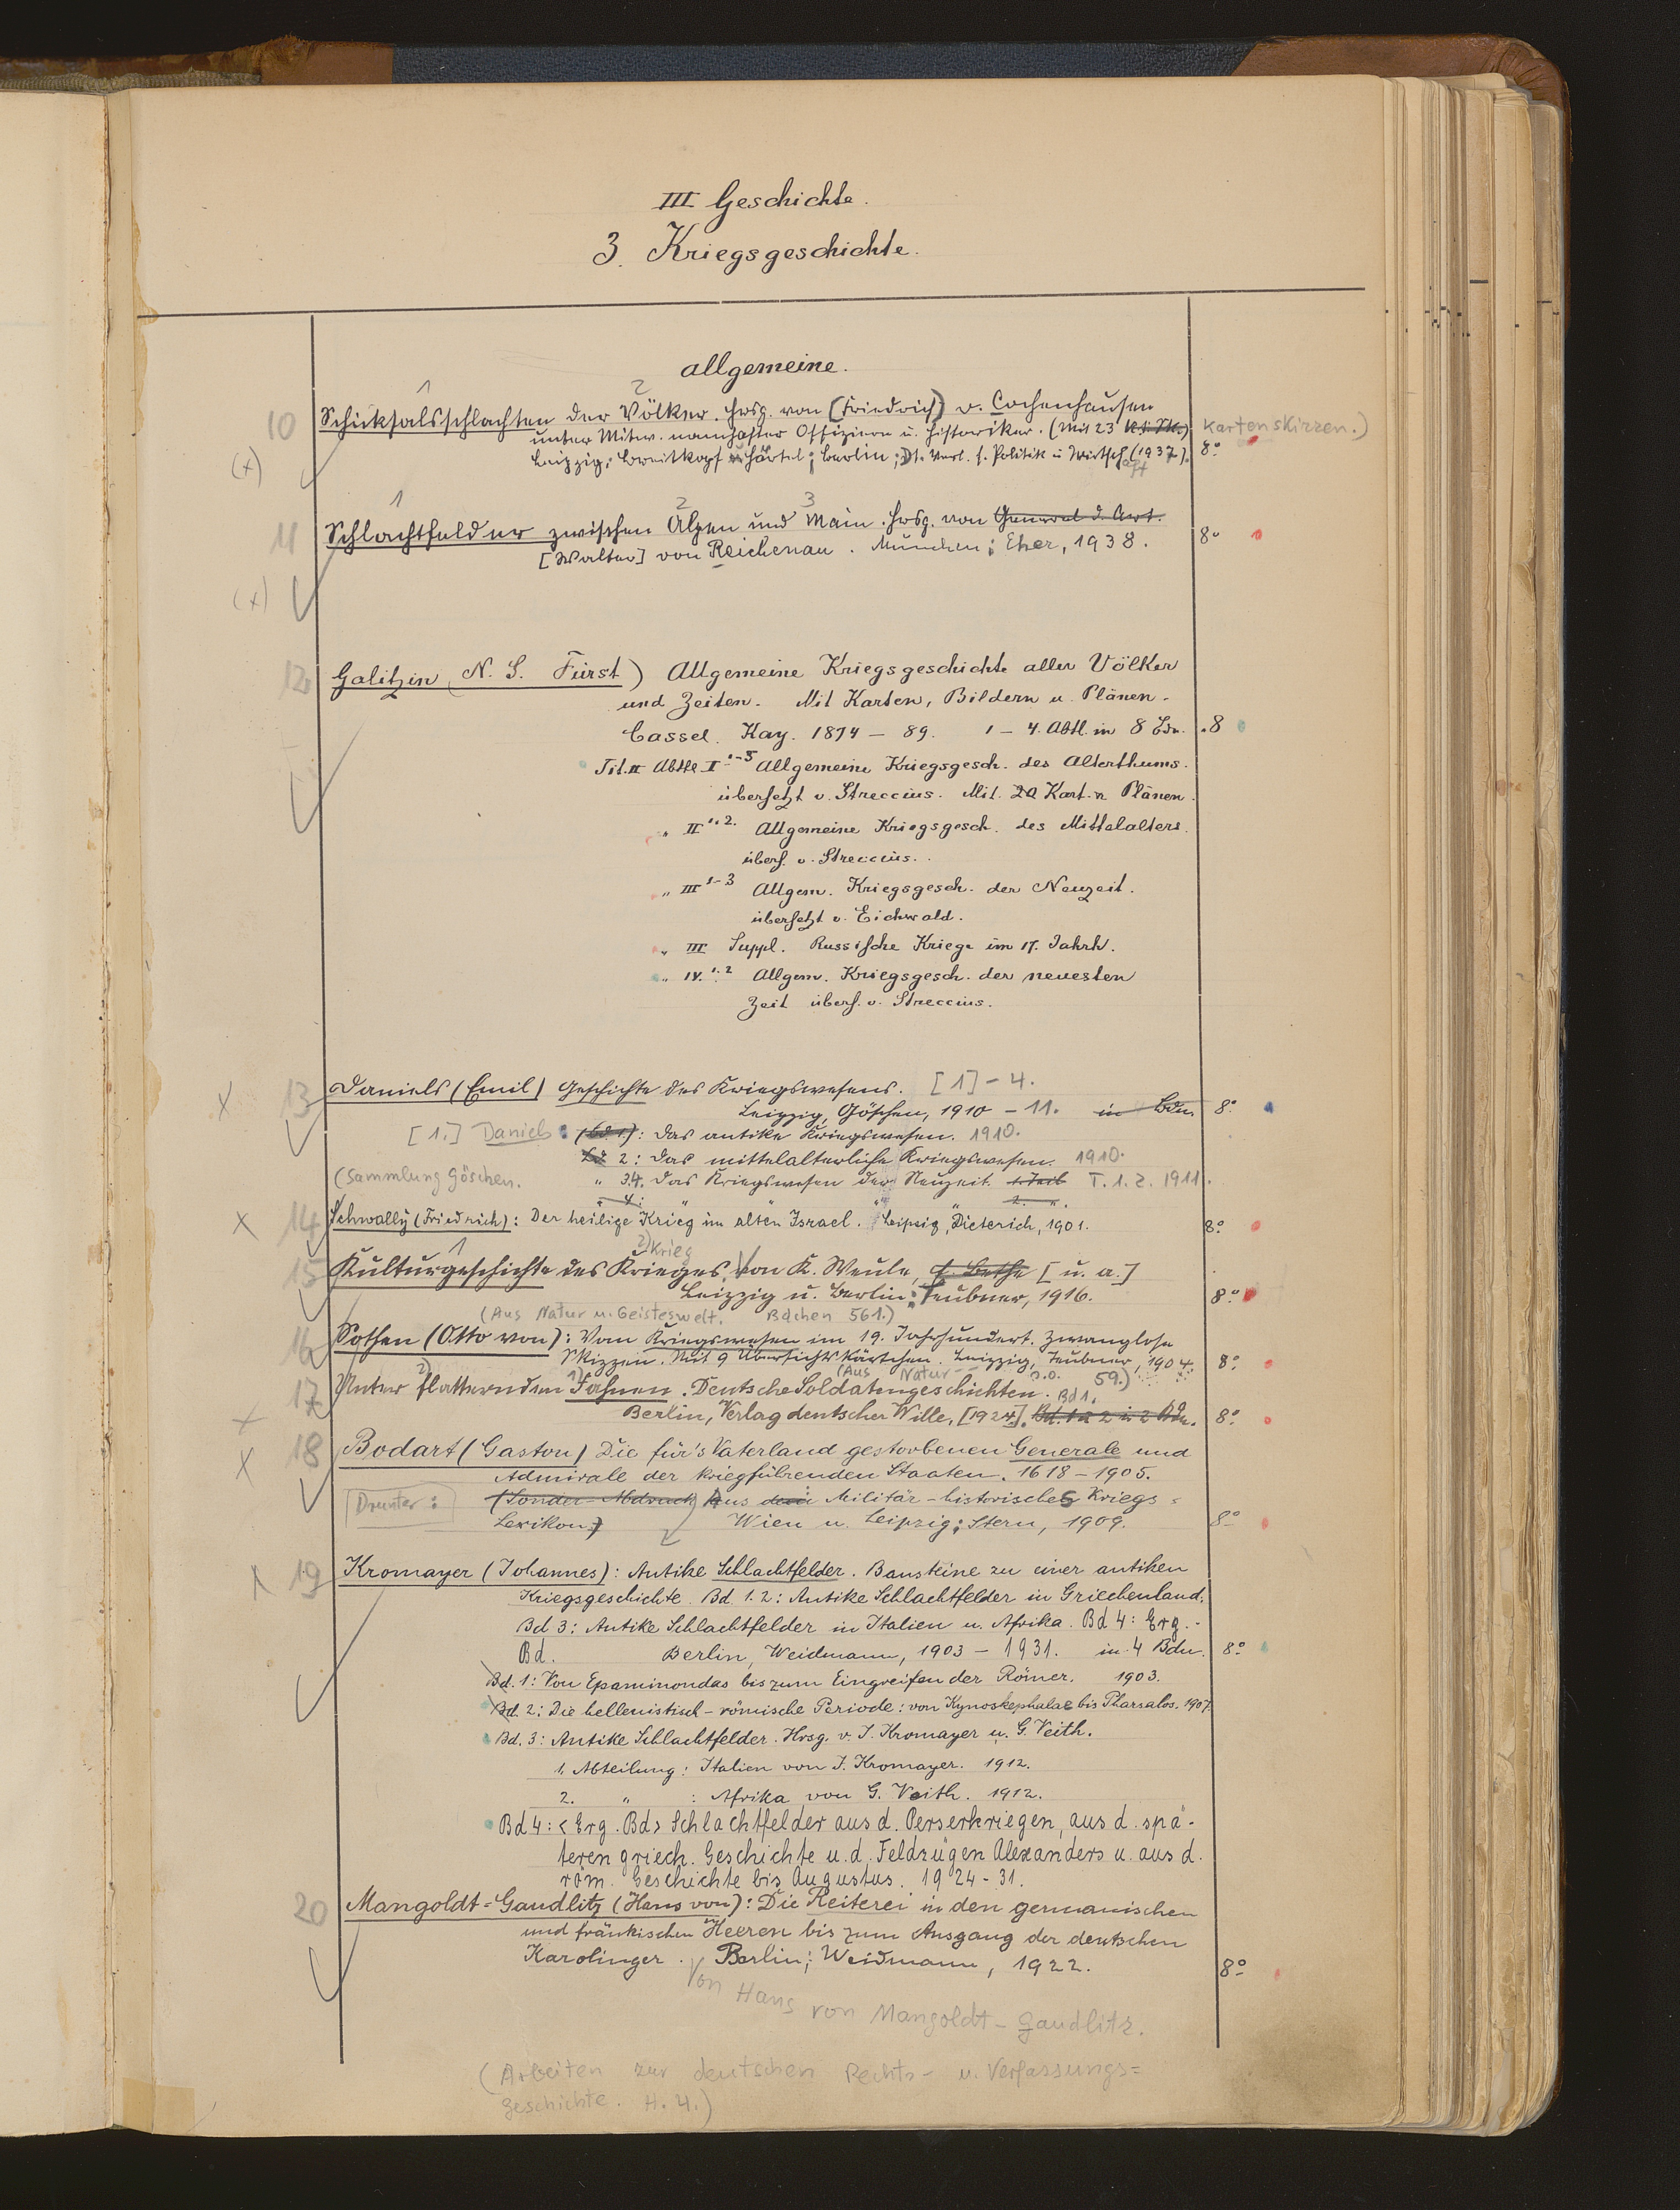 III Geschichte.
3. Kriegsgeschichte.
allgemeine.
1 2
10 Schicksalsschlachten der Völker. Hrsg. von (Friedrich) v. Cochenhausen
unter Mitw. namhafter Offiziere u. Historiker. (Mit 23 Kartenskizzen.)
(x) Leipzig: Breitkopf u. Härtel; Berlin: Dt. Verl. f. Politik u. Wirtschaft (1937). 8°
1 2 3
11 Schlachtfelder zwischen Alpen und Main. Hrsg. von General d. Art.
[Walter] von Reichenau. München: Eher, 1938. 8°
(x)
12 Galitzin (N. S. Fürst) Allgemeine Kriegsgeschichte aller Völker
und Zeiten. Mit Karten, Bildern u. Plänen.
Cassel. Kay. 1874 – 89. 1 – 4. Abtl. in 8 Bdn. 8
Abtle I 1-5 Allgemeine Kriegsgesch. des Alterthums.
übersetzt v. Streccius. Mit 20 Kart. u. Plänen.
„ II 1. 2. Allgemeine Kriegsgesch. des Mittelalters.
übers. v. Streccius.
„ III 1-3 Allgem. Kriegsgesch. der Neuzeit.
übersetzt v. Eichwald.
„ III Suppl. Russische Kriege im 17. Jahrh.
„ IV. 1. 2 Allgem. Kriegsgesch. der neuesten
Zeit übers. v. Streccius.
x 13 Daniels (Emil) Geschichte des Kriegswesens. [1] – 4.
Leipzig, Göschen, 1910 – 11. in Bdn. 8°
[1.] Daniels: (Bd 1.): Das antike Kriegswesen. 1910.
Bd 2: Das mittelalterliche Kriegswesen. 1910.
(Sammlung Göschen. „ 3.4. Das Kriegswesen der Neuzeit. 1. Teil T. 1. 2. 1911.
„ 4: „ „ „ 2. „.
x 14 Schwally (Friedrich): Der heilige Krieg im alten Israel. Leipzig, Dieterich, 1901. 8°
1 2) Krieg
15 Kulturgeschichte des Krieges. Von K. Weule, E. Bethe [u. a.]
Leipzig u. Berlin: Teubner, 1916. 8°
(Aus Natur u. Geisteswelt. Bdchen 561.)
16 Sothen (Otto von): Vom Kriegswesen im 19. Jahrhundert. Zwanglose
Skizzen. Mit 9 Übersichtskärtchen. Leipzig, Teubner, 1904. 8°
2) 1) (Aus Natur 59.)
17 Unter flatternden Fahnen. Deutsche Soldatengeschichten. Bd 1.
x Berlin, Verlag deutscher Wille, [1924]. Bd. 1 u 2 in 2 Bdn. 8°
x 18 Bodart (Gaston) Die für's Vaterland gestorbenen Generale und
Admirale der kriegführenden Staaten. 1618 – 1905.
Drunter: (Sonder-Abdruck) Aus dem Militär-historisches Kriegs=
Lexikon) Wien u. Leipzig: Stern, 1909. 8°
x 19 Kromayer (Johannes): Antike Schlachtfelder. Bausteine zu einer antiken
Kriegsgeschichte. Bd. 1. 2: Antike Schlachtfelder in Griechenland;
Bd 3: Antike Schlachtfelder in Italien u. Afrika. Bd 4: Erg.-
Bd. Berlin, Weidmann, 1903 – 1931. in 4 Bdn. 8°
Bd. 1: Von Epaminondas bis zum Eingreifen der Römer. 1903.
Bd. 2: Die hellenistisch-römische Periode: von Kynoskephalae bis Pharsalos. 1907.
Bd. 3: Antike Schlachtfelder. Hrsg. v. J. Kromayer u. G. Veith.
1. Abteilung: Italien von J. Kromayer. 1912.
2. „ : Afrika von G. Veith. 1912.
Bd 4: <Erg. Bd> Schlachtfelder aus d. Perserkriegen, aus d. spä-
teren griech. Geschichte u. d. Feldzügen Alexanders u. aus d.
röm. Geschichte bis Augustus. 1924-31.
20 Mangoldt=Gaudlitz (Hans von): Die Reiterei in den germanischen
und fränkischen Heeren bis zum Ausgang der deutschen
Karolinger. Berlin; Weidmann, 1922. 8°
Von Hans von Mangoldt-Gaudlitz.
(Arbeiten zur deutschen Rechts- u. Verfassungs=
geschichte. H. 4.)